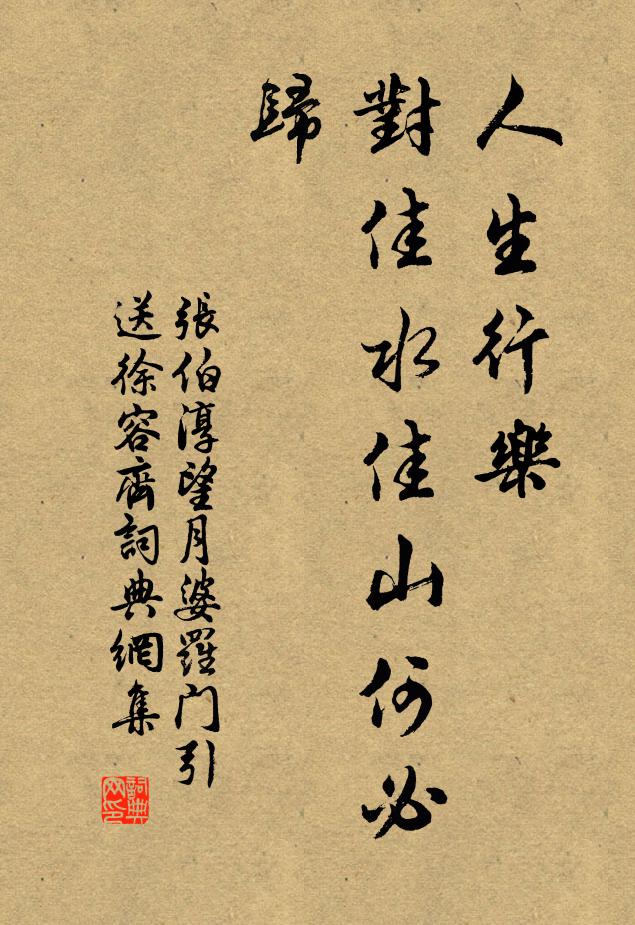 人生行樂
對佳水佳山何必
歸
張伯淳望月婆羅門引
送徐容齋詞典網集
詞典
网印